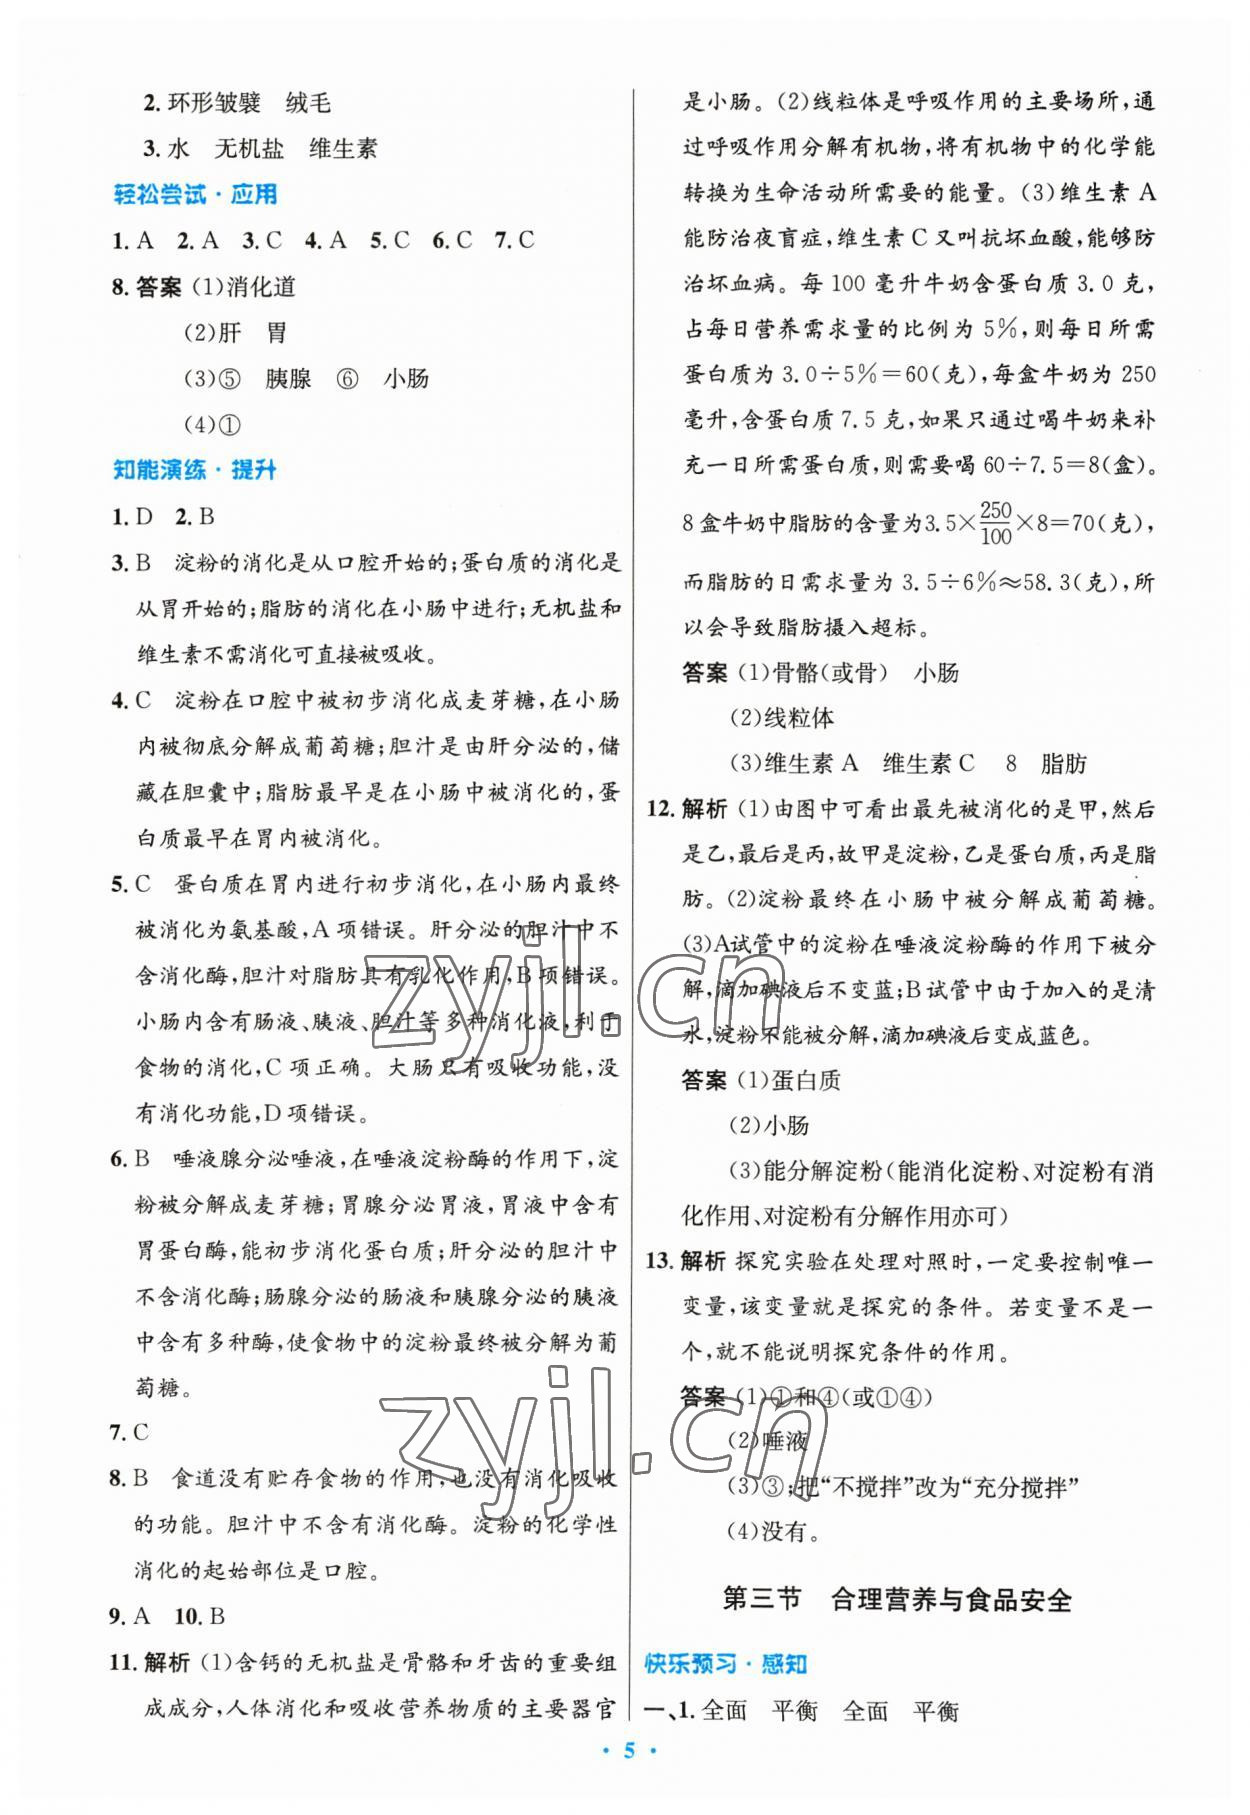 2.环形皱襞　绒毛
3.水　无机盐　维生素
轻松尝试·应用
1. A　2. A　3. C　4. A　5. C　6. C　7. C
8.答案 (1)消化道
(2)肝　胃
(3)⑤　胰腺　⑥　小肠
(4)①
知能演练·提升
1. D　2. B
3. B　淀粉的消化是从口腔开始的;蛋白质的消化是
从胃开始的;脂肪的消化在小肠中进行;无机盐和
维生素不需消化可直接被吸收。
4. C　淀粉在口腔中被初步消化成麦芽糖,在小肠
内被彻底分解成葡萄糖;胆汁是由肝分泌的,储
藏在胆囊中;脂肪最早是在小肠中被消化的,蛋
白质最早在胃内被消化。
5. C　蛋白质在胃内进行初步消化,在小肠内最终
被消化为氨基酸,A项错误。肝分泌的胆汁中不
含消化酶,胆汁对脂肪具有乳化作用,B项错误。
小肠内含有肠液、胰液、胆汁等多种消化液,利于
食物的消化,C项正确。大肠只有吸收功能,没
有消化功能,D项错误。
6. B　唾液腺分泌唾液,在唾液淀粉酶的作用下,淀
粉被分解成麦芽糖;胃腺分泌胃液,胃液中含有
胃蛋白酶,能初步消化蛋白质;肝分泌的胆汁中
不含消化酶;肠腺分泌的肠液和胰腺分泌的胰液
中含有多种酶,使食物中的淀粉最终被分解为葡
萄糖。
7. C
8. B　食道没有贮存食物的作用,也没有消化吸收
的功能。胆汁中不含有消化酶。淀粉的化学性
消化的起始部位是口腔。
9. A　10. B
11.解析 (1)含钙的无机盐是骨骼和牙齿的重要组
成成分,人体消化和吸收营养物质的主要器官
是小肠。(2)线粒体是呼吸作用的主要场所,通
过呼吸作用分解有机物,将有机物中的化学能
转换为生命活动所需要的能量。(3)维生素 A
能防治夜盲症,维生素C又叫抗坏血酸,能够防
治坏血病。每 100 毫升牛奶含蛋白质 3.0 克,
占每日营养需求量的比例为 5%,则每日所需
蛋白质为 3.0÷5%=60(克),每盒牛奶为 250
毫升,含蛋白质7.5克,如果只通过喝牛奶来补
充一日所需蛋白质,则需要喝 60÷7.5=8(盒)。
8盒牛奶中脂肪的含量为3.5×250/100×8=70(克),
而脂肪的日需求量为 3.5÷6%≈58.3(克),所
以会导致脂肪摄入超标。
答案 (1)骨骼(或骨)　小肠
(2)线粒体
(3)维生素 A　维生素 C　8　脂肪
12.解析 (1)由图中可看出最先被消化的是甲,然后
是乙,最后是丙,故甲是淀粉,乙是蛋白质,丙是脂
肪。(2)淀粉最终在小肠中被分解成葡萄糖。
(3)A试管中的淀粉在唾液淀粉酶的作用下被分
解,滴加碘液后不变蓝;B试管中由于加入的是清
水,淀粉不能被分解,滴加碘液后变成蓝色。
答案 (1)蛋白质
(2)小肠
(3)能分解淀粉(能消化淀粉、对淀粉有消
化作用、对淀粉有分解作用亦可)
13.解析 探究实验在处理对照时,一定要控制唯一
变量,该变量就是探究的条件。若变量不是一
个,就不能说明探究条件的作用。
答案 (1)①和④(或①④)
(2)唾液
(3)③;把“不搅拌”改为“充分搅拌”
(4)没有。
第三节　合理营养与食品安全
快乐预习·感知
一、1.全面　平衡　全面　平衡
· 5 ·
zyjl.cn
zyjl.cn